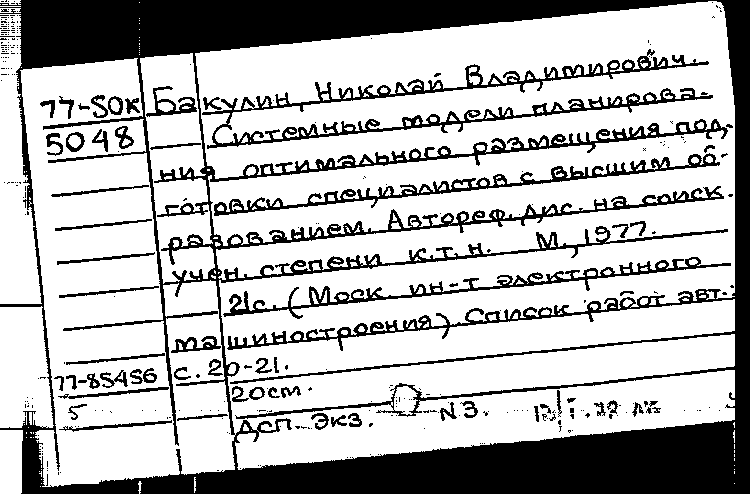 77-5ОК Бакулин, Николай Владимирович.
5048 Системные модели планирова-
ния оптимального размещения под-
готовки специалистов с высшим об-
разованием. Автореф. дис. на соиск.
учен. степени к.т.н. М., 1977.
21с. (Моск. ин-т электронного
машиностроения). Список работ авт.:
77-85456 с. 20-21.
5 20см.
ДСП. Экз. N3.